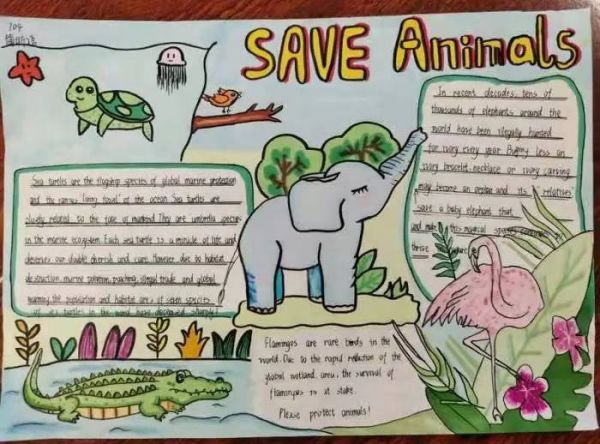 704
SAVE Animals
In recent decades, tens of
thousands of elephants around the
world have been illegally hunted
for ivory every year. Buying less an
ivory bracelet, necklace or ivory carving
may become an orphan and its relatives
save a baby elephant that
and make this magical species
thrive
Sea turtles are the flagship species of global marine protection
and the famous "living fossil" of the ocean. Sea turtles are
closely related to the fate of mankind. They are umbrella species
in the marine ecosystem. Each sea turtle is a miracle of life and
deserves our double cherish and care. However due to habitat
destruction, marine pollution, poaching, illegal trade and global
warming, the population and habitat area of seven species
of sea turtles in the world have decreased sharply!
Flamingos are rare birds in the
world. Due to the rapid reduction of the
global wetland area, the survival of
flamingos is at stake.
Please protect animals!